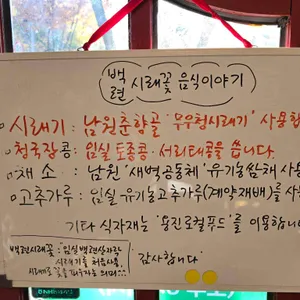 백련 시래꽃 음식이야기
○시래기 : 남원춘향골 '무우청시래기' 사용합
○청국장콩 : 임실 토종콩·서리태콩을 씁니다.
○채 소 : 남원 '새벽공동체' 유기농쌈채 사용
○고추가루 : 임실 유기농고추가루(계약재배)를 사용
기타 식자재는 '용진로컬푸드'를 이용합니
백련시래꽃 : '임실백련산자락
시래기를 처음사용,
시래기로 꽃을 피우자는 의미…
감사합니다